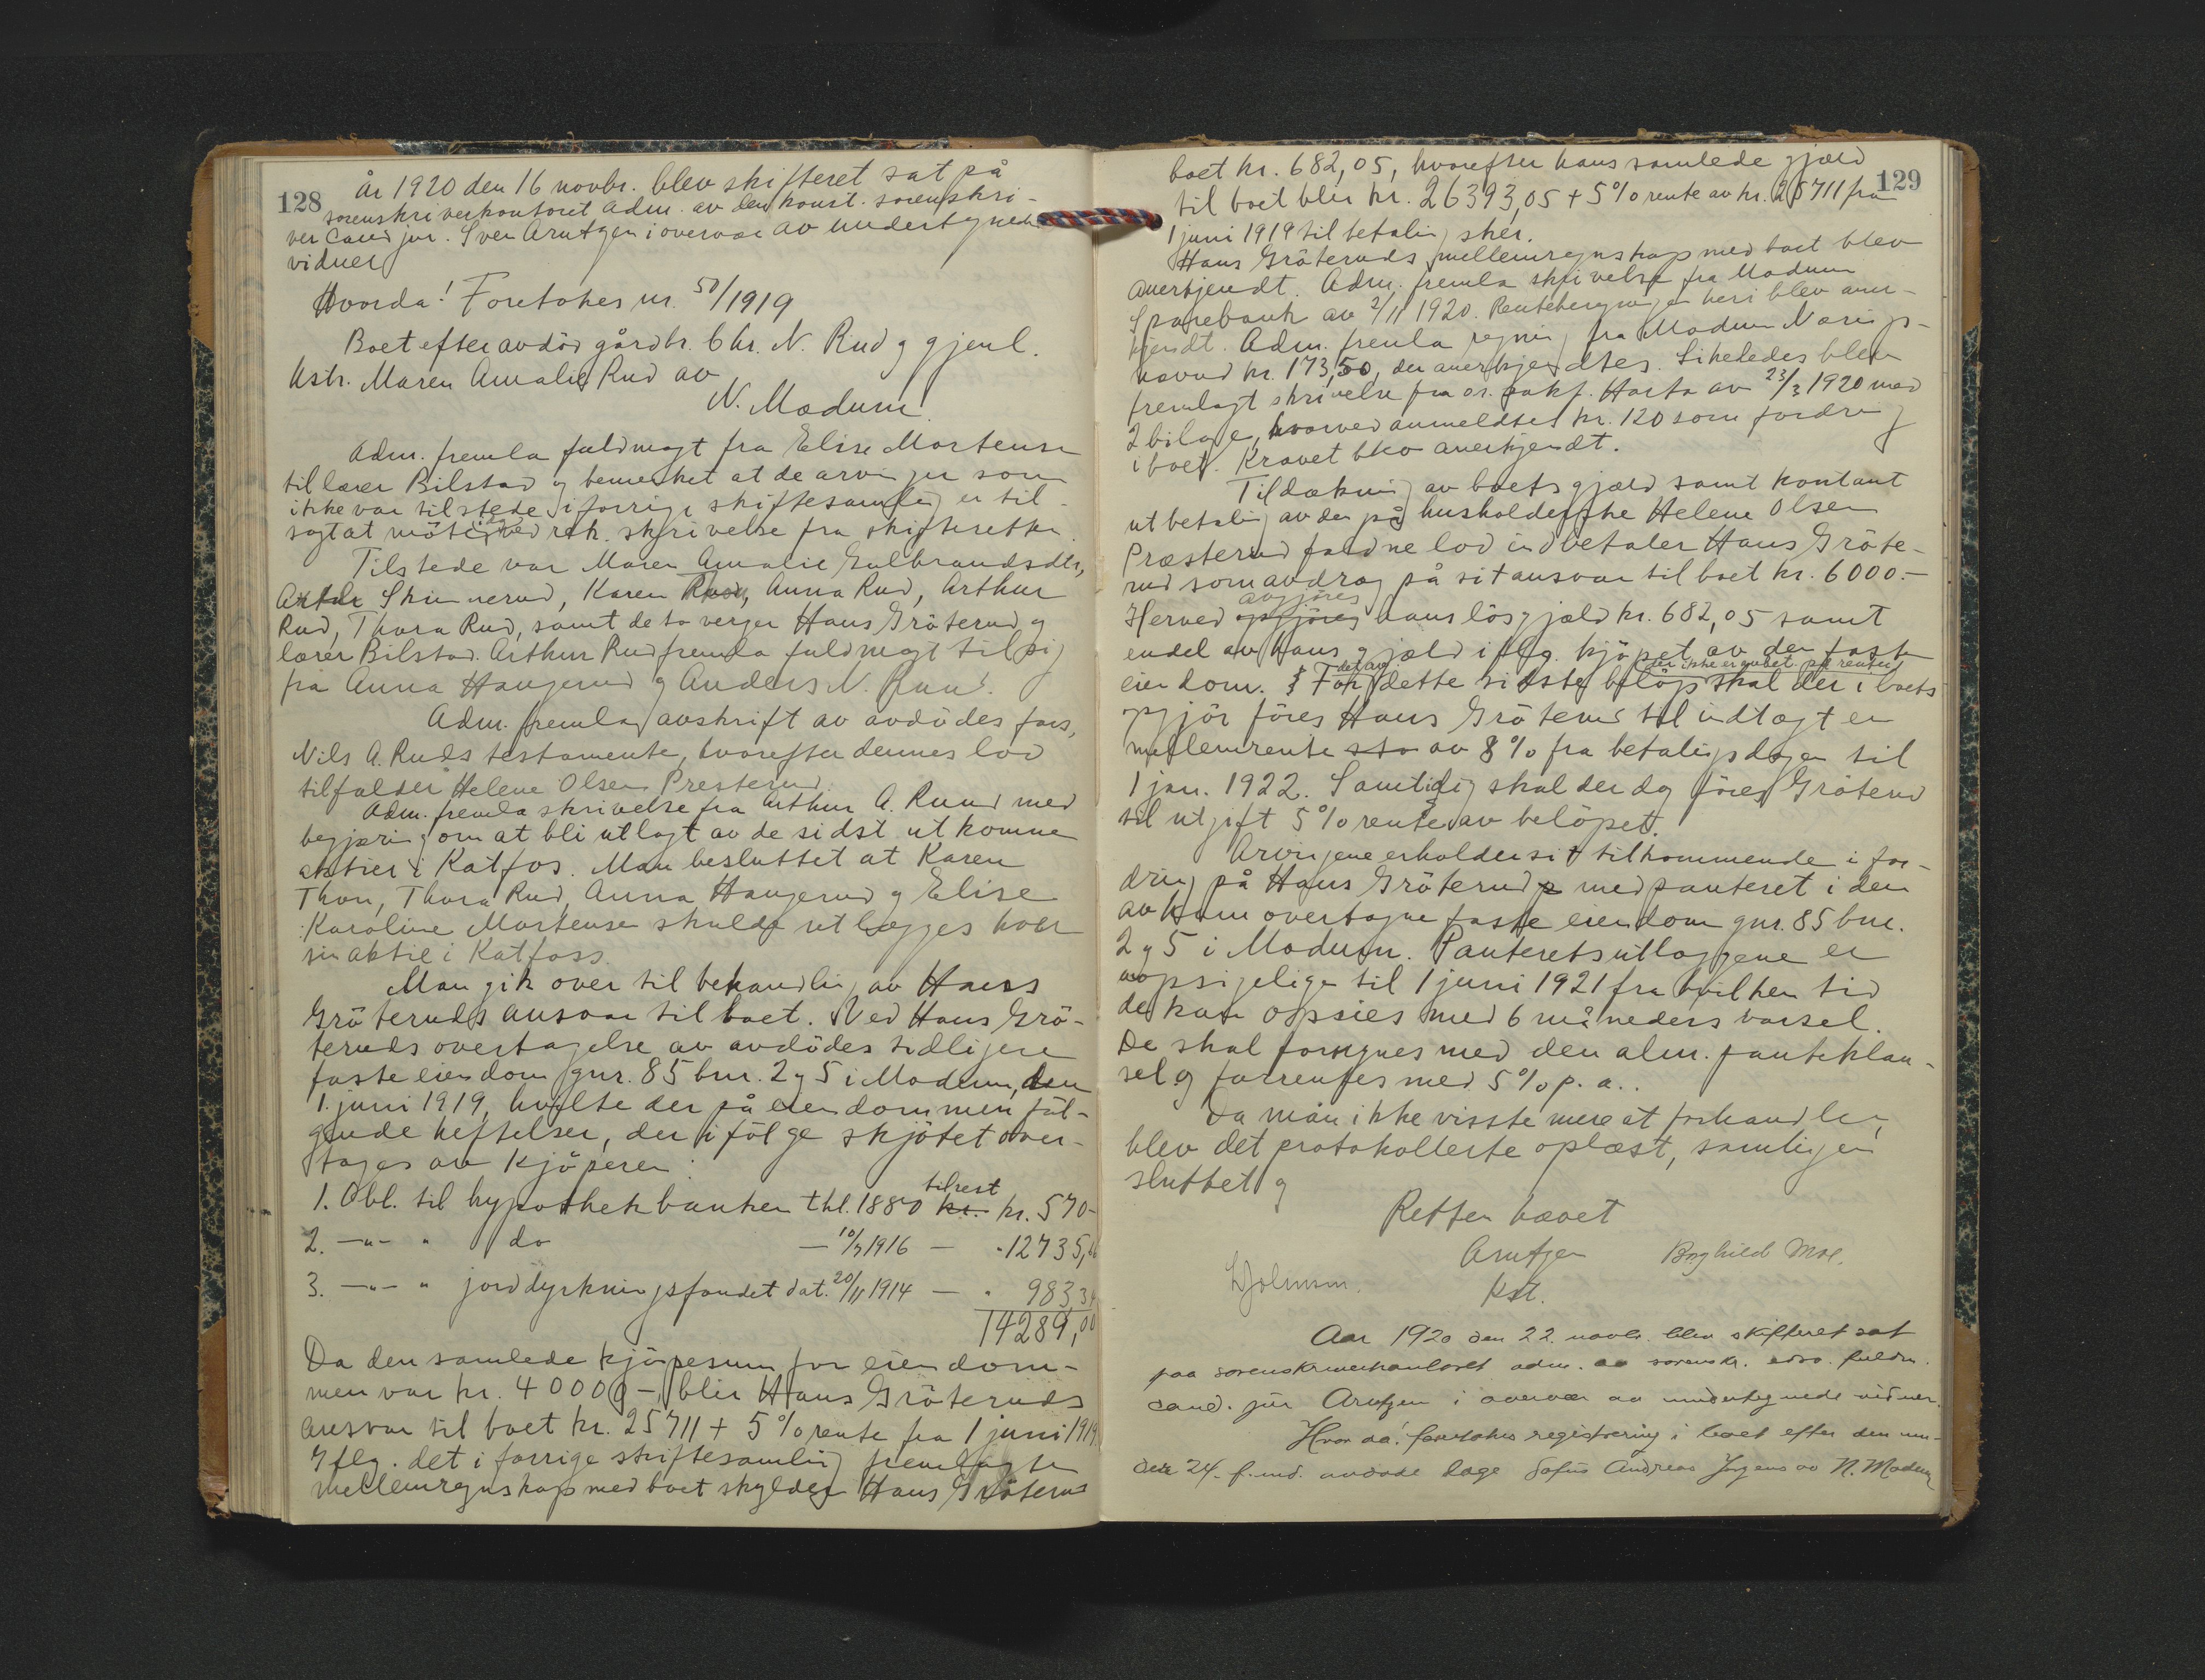 128
År 1920 den 16 novbr. blev skifteret sat på
sorenskriverkontoret adm. av den konst. sorenskri-
ver cand jur. Sven Arntzen i overvær av undertegnede
vidner
Hvorda! Foretokes nr. 50/1919
Boet efter avdöd gårdbr. Chr. N. Rud og gjenl.
Astr. Maren Amalie Rud av
N. Modum.
Adm. fremla fuldmagt fra Elise Mortensen
til lærer Bilstad og bemerket at de arvinger som
ikke var tilstede i forrige skiftesamling er til-
sagt at møte ved rek. skrivelse fra skifteretten.
Tilstede var Maren Amalie Gulbrandsdtr,
Skinnerud, Karen Anna Rud, Arthur
Rud, Thora Rud, samt de to verger Hans Gröterud og
lærer Bilstad. Arthur Rud fremla fuldmagt til sig
fra Anna Haugerud og Anders N. Ruud.
Adm. fremla avskrift av avdödes fars,
Nils A. Ruds testamente, hvorefter dennes lod
tilfalder Helene Olsen Presterud.
Adm. fremla skrivelse fra Arthur A. Ruud med
begjæring om at bli utlagt av de sidst utkomne
aktier i Katfos. Man besluttet at Karen
Thon, Thora Rud, Anna Haugerud og Elise
Karoline Mortensen skulde utlægges hver
sin aktie i Katfoss.
Man gik over til behandling av Hans
Gröteruds ansvar til boet. Ved Hans Grö-
teruds overtagelse av avdödes tidligere
faste eiendom gnr. 85 bnr. 2 og 5 i Modum, den
1. juni 1919, hvilte der på eiendommen föl-
gende heftelser, der ifölge skjötet over-
tages av kjöperen:
1. Obl. til hypothekbanken thl. 1880 tilrest kr. kr. 570-
2. -"- " do - 10/7 1916 - " 12735,66
3. -"- " jorddyrkningsfondet dat. 20/11 1914 - " 983,34
14289,00
Da den samlede kjöpesum for eiendom-
men var kr. 40000-, blir Hans Gröteruds
ansvar til boet kr. 25711 + 5% rente fra 1 juni 1919.
Iflg. det i forrige skiftesamling fremlagte
mellemregnskap med boet skylder Hans Gröterud
129
boet kr. 682,05, hvorefter hans samlede gjæld
til boet blir kr. 26393,05 + 5% rente av kr. 25711 fra
1 juni 1919 til betaling sker.
Hans Gröteruds mellemregnskap med boet blev
anerkjendt. Adm. fremla skrivelse fra Modum
Sparebank av 2/11 1920. Renteberegningen heri blev aner-
kjendt. Adm. fremla regning fra Modum Nærings-
kr. 173,50, der anerkjendtes. Likeledes blev
fremlagt skrivelse fra or. sakf. Harto av 23/3 1920 med
2 bilage, hvorved anmeldtes kr. 120 som fordring
i boet. Kravet blev anerkjendt.
Til dækning av boets gjæld samt kontant
utbetaling av den på husholderske Helene Olsen
Præsterud faldne lod indbetaler Hans Gröte-
rud som avdrag på sit ansvar til boet kr. 6000.-
avgjöres
Herved opgjöres hans lösgjæld kr. 682,05 samt
endel av hans gjæld iflg. kjöpet av den faste
eiendom. For dette sidste belöp skal der i boets
opgjör föres Hans Gröterud til indtægt en
mellemrente av 8% fra betalingsdagen til
1 jan. 1922. Samtidig skal der dog föres Gröterud
til utgift 5% rente av belöpet.
Arvingene erholder sit tilkommende i for-
dring på Hans Gröterud med panteret i den
av ham overtagne faste eiendom gnr. 85 bnr.
2 og 5 i Modum. Panteretsutlæggene er
uopsigelige til 1 juni 1921 fra hvilken tid
de kan opsies med 6 måneders varsel.
De skal forsynes med den alm. panteklau-
sel og forrentes med 5% p. a..
Da man ikke visste mere at forhandle,
blev det protokollerte oplæst, samlingen
sluttet og
Retten hævet
Arntzen Borghild Moe.
Kst.
Aar 1920 den 22. novbr. blev skifteret sat
paa sorenskriverkontoret adm. av sorenskr. edsv. fuldm.
cand. jur Arntzen i overvær av undertegnede vidner.
Hvorda! foretokes registrering i boet efter den un-
der 24. f. md. avdöde Andreas av N. Modum